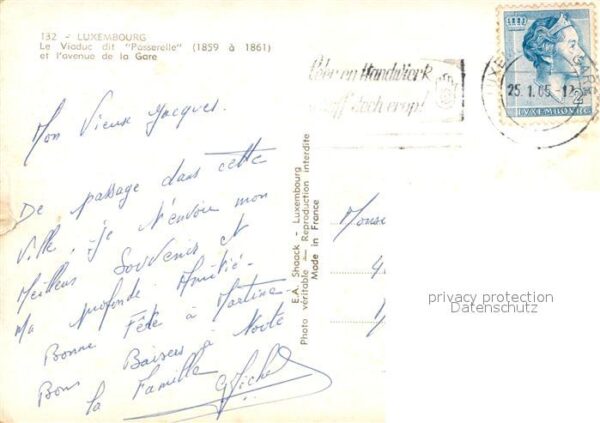 132 - LUXEMBOURG
Le Viaduc dit "Passerelle" (1859 à 1861)
et l'avenue de la Gare
Mon Vieux Jacques.
De passage dans cette
Ville, je t'envoie mon
Meilleur Souvenir et
Ma profonde Amitié.
Bonne Fête à Martine.
Bons Baisers à toute
la Famille
E.A. Shaack - Luxembourg
Photo véritable — Reproduction interdite
Made in France
Léier en Handwierk
doch erop!
25. 1. 65 - 12
GARE
LUXEMBOURG
Monsi
privacy protection
Datenschutz